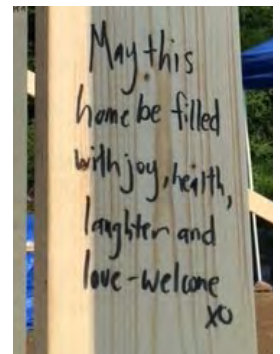 May this
home be filled
with joy, health,
laughter and
love-welcome
xo